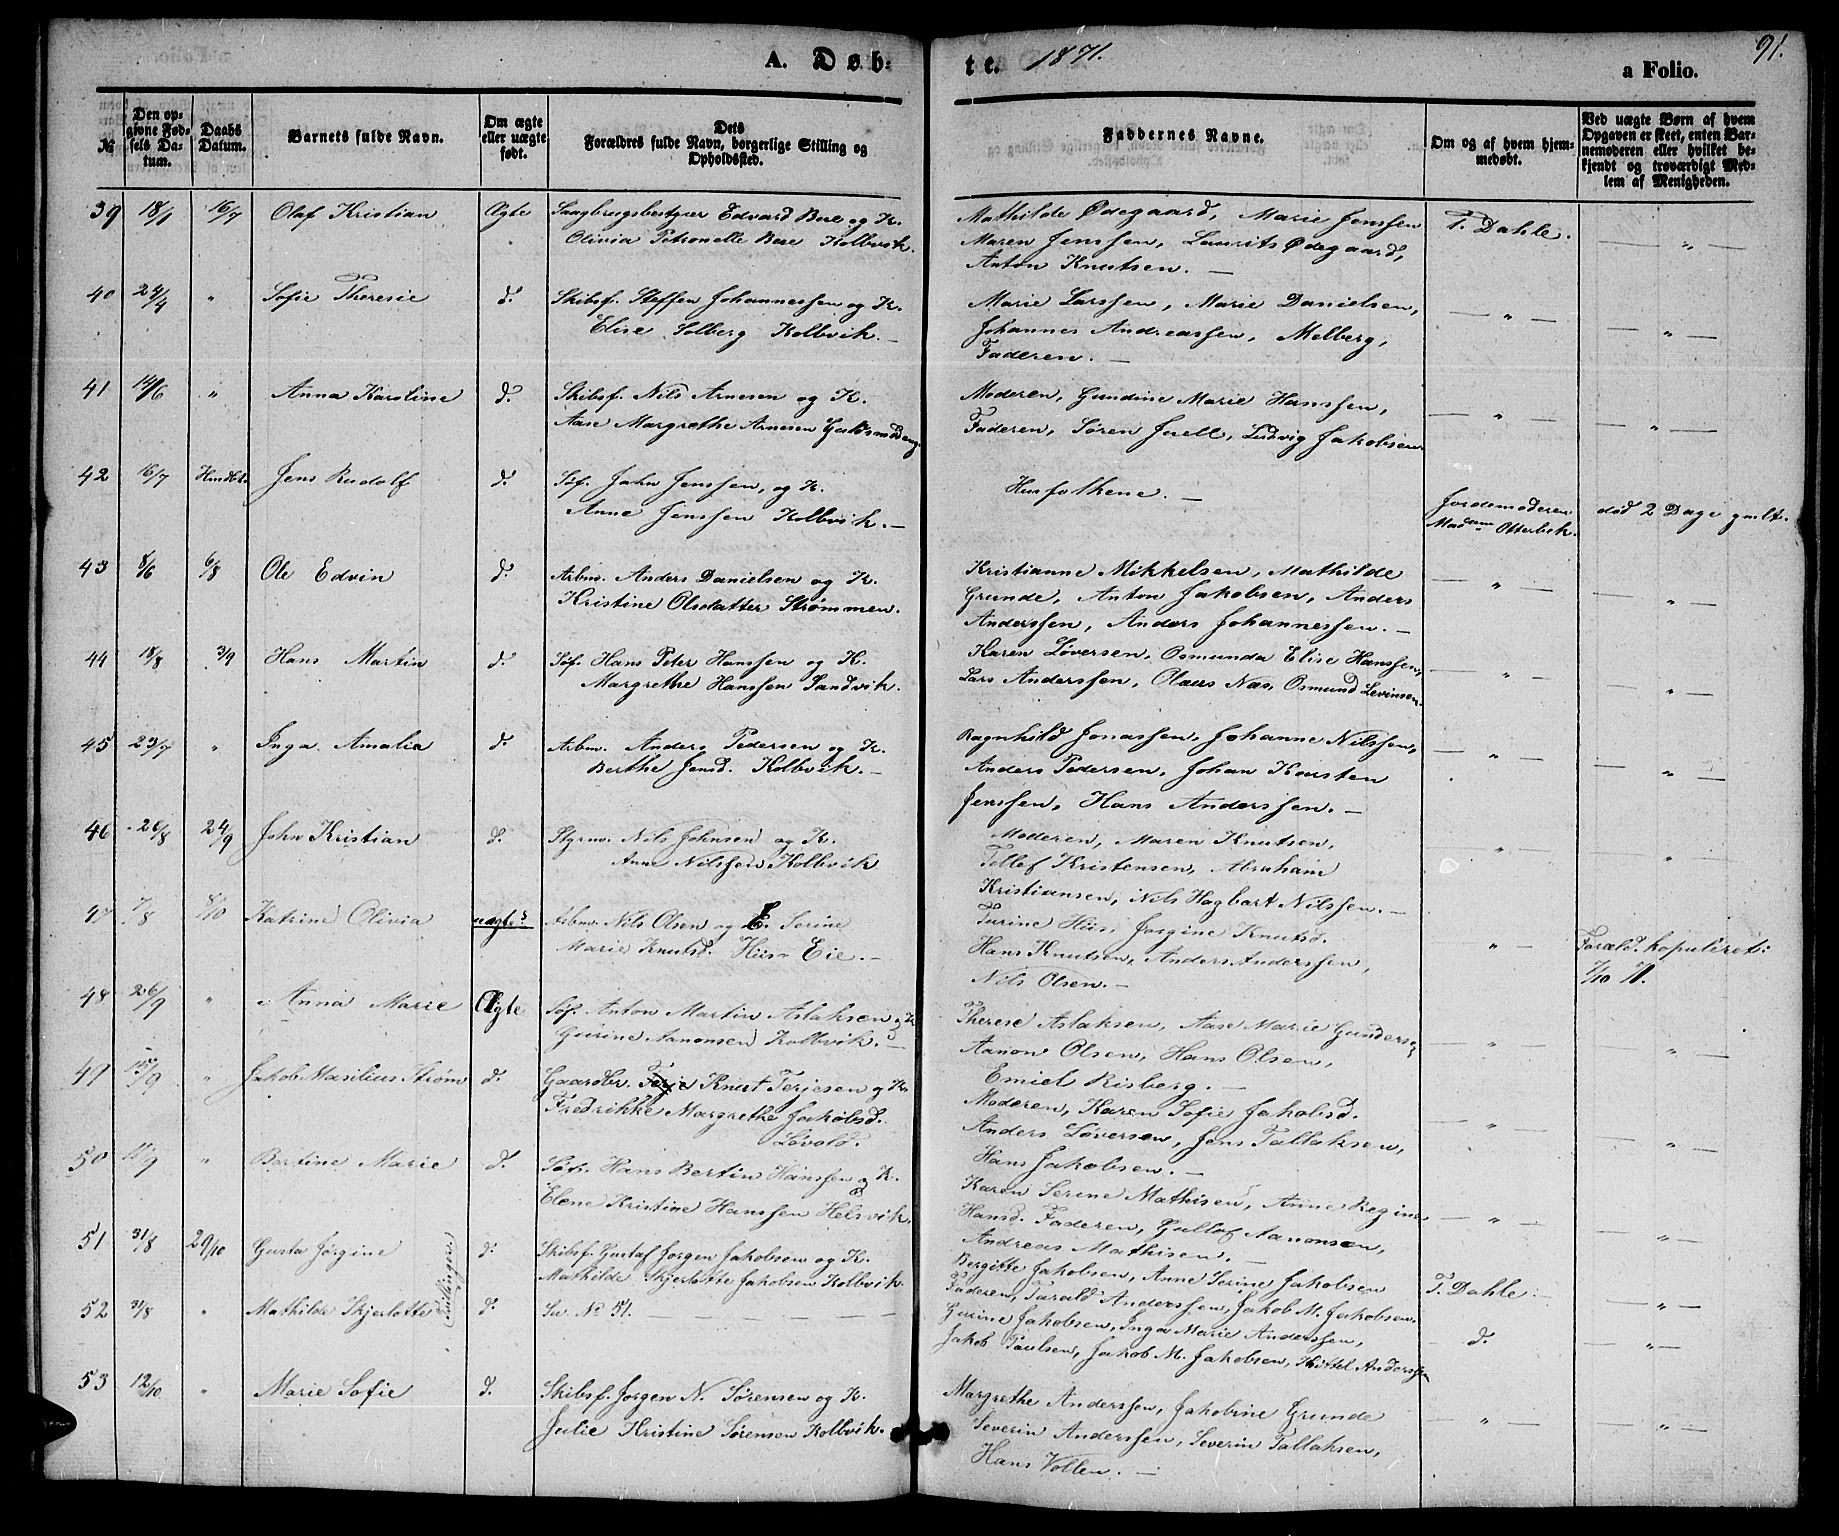 A. Døb-
te. 1871.
a Folio.
91.
№
Den op-
givne Fød-
sels Da-
tum.
Daabs
Datum.
Barnets fulde Navn.
Om ægte
eller uægte
født.
Dets
Forældres fulde Navn, borgerlige Stilling og
Opholdssted.
Faddernes Navne.
Om og af hvem hjem-
medøbt.
Ved uægte Børn af hvem
Opgaven er skeet, enten Bar-
nemoderen eller hvilket be-
kjendt og troværdigt Med-
lem af Menigheden.
39 18/1 16/7 Olaf Kristian Ægte Saugbrugsbestyrer Edvard Boe og K.
Olivia Petronelle Boe Kolbvik.
Mathilde Ødegaard, Marie Jenssen
Maren Jenssen, Laurits Ødegaard,
Anton Knutsen. —
T. Dahle. — " —
40 24/4 " Sofie Theresie d. Skibsf. Steffen Johannessen og K.
Elise Solberg Kolbvik. —
Marie Larssen, Marie Danielsen,
Johannes Andreassen, Melberg,
Faderen. —
— " — — " —
41 14/6 " Anna Karoline d. Skibsf. Nils Arnesen og K.
Aase Margrethe Arnesen Guldsmedeng
Moderen, Gundine Marie Hanssen,
Faderen, Søren Juell, Ludvig Jakobsen.
— " — — " —
42 16/7 Hmdbt. Jens Rudolf d. Søf. John Jenssen, og K.
Anne Jenssen Kolbvik. —
Husfolkene. —
Jordemoderen
Madam Otterbek.
død 2 Dage gmlt.
43 8/6 6/8 Ole Edvin d. Arbm. Anders Danielsen og K.
Kristine Olsdatter Strømmen.
Kristianne Mikkelsen, Mathilde
Grunde, Anton Jakobsen, Anders
Anderssen, Anders Johannessen. —
— " — — " —
44 18/8 3/9 Hans Martin d. Søf. Hans Peter Hanssen og K.
Margrethe Hanssen Sandvik.
Karen Løversen, Osmunda Elise Hanssen,
Lars Anderssen, Olaus Næs, Osmund Levinsen.
— " — — " —
45 23/7 " Inga Amalia d. Arbm. Anders Pedersen og K.
Berthe Jensd. Kolbvik. —
Ragnhild Jonassen, Johanne Nilssen,
Anders Pedersen, Johan Karsten
Jenssen, Hans Anderssen. —
— " — — " —
46 26/8 24/9 John Kristian d. Styrm. Nils Johnsen og K.
Anne Nilssen Kolbvik
Moderen, Maren Knutsen,
Tellef Kristensen, Abraham
Kristiansen, Nils Hagbart Nilssen. —
" — "
47 7/8 8/10 Katrine Olivia uægte Arbm. Nils Olsen og E. Serine
Marie Knutsd. Hiis Eie. —
Turine Hiis, Jorgine Knutsd.
Hans Knutsen, Anders Anderssen,
Nils Olsen. —
" — Foræld. kopuleret:
7/10 71.
48 26/9 " Anna Marie Ægte Søf. Anton Martin Aslaksen og K
Gurine Aanonsen Kolbvik. —
Therese Aslaksen, Aase Marie Gunders.
Aanon Olsen, Hans Olsen,
Emiel Risberg. —
— " — — " —
49 15/9 " Jakob Masilius Strøm d. Gaardbr. Terje Knut Terjesen og K.
Fredrikke Margrethe Jakobsd.
Løvold.
Moderen, Karen Sofie Jakobsd.
Anders Løversen, Jens Tallaksen,
Hans Jakobsen. —
— " — — " —
50 11/9 " Bertine Marie d. Søf. Hans Bertin Hanssen og K.
Elene Kristine Hanssen Helsvik.
Karen Serine Mathisen, Anne Regine
Hansd. Faderen, Gullof Aanonsen,
Andreas Mathisen. —
— " — — " —
51 31/8 29/10 Gusta Jørgine d. Skibsf. Gustaf Jorgen Jakobsen og K.
Mathilde Skjerlotte Jakobsen Kolbvik
Bergitte Jakobsen, Anne Serine Jakobsen
Faderen, Tarald Anderssen, Jakob M. Jakobsen.
T. Dahle. — " —
52 31/8 " Mathilde Skjerlotte (Tvillinger) d. Se No 51. — — — —
Gurine Jakobsen, Inga Marie Anderssen,
Jakob Paulsen, Jakob M. Jakobsen, Kittel Anderssen
d. "—
53 12/10 " Marie Sofie d. Skibsf. Jorgen N. Sørensen og K.
Julie Kristine Sørensen Kolbvik.
Margrethe Anderssen, Jakobine Grunde
Severin Anderssen, Severin Tallaksen,
Hans Vollen. —
— " — — " —